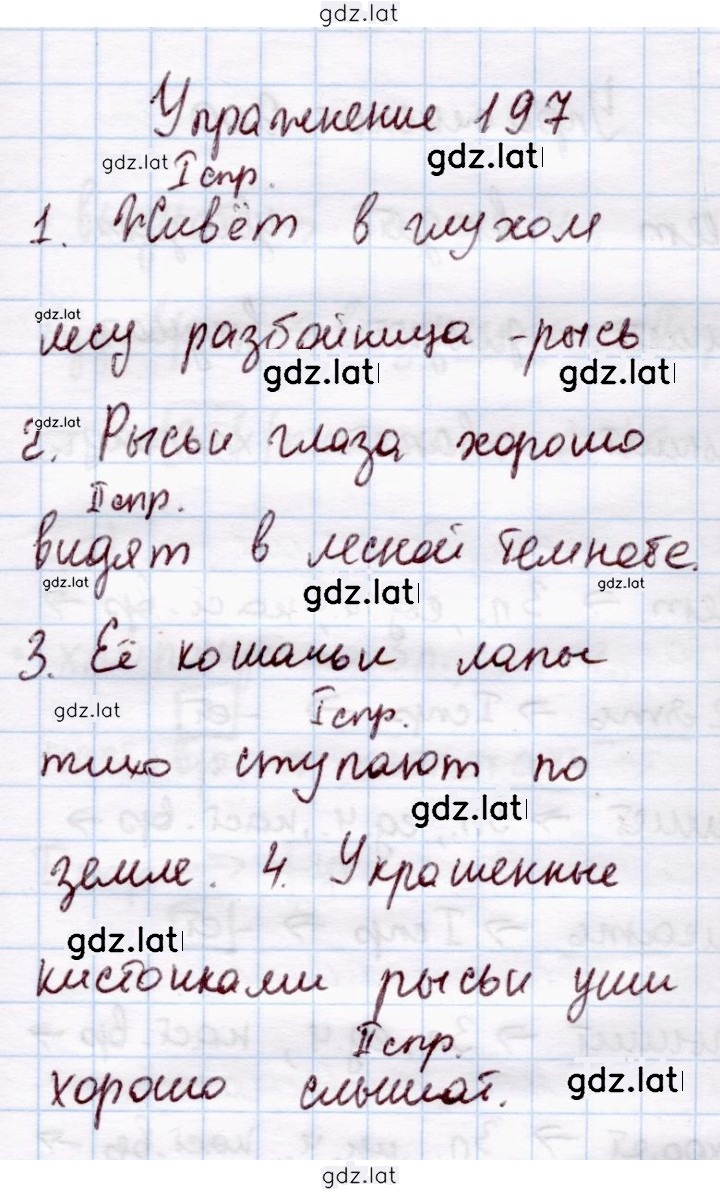 gdz.lat
Упражнение 197
gdz.lat gdz.lat
I спр.
1. Живёт в глухом
gdz.lat
лесу разбойница -рысь
gdz.lat gdz.lat
gdz.lat
2. Рысьи глаза хорошо
II спр.
видят в лесной темноте.
gdz.lat gdz.lat gdz.lat
3. Её кошачьи лапы
gdz.lat I спр.
тихо ступают по
gdz.lat
земле. 4. Украшенные
gdz.lat
кисточками рысьи уши
II спр.
хорошо слышат.
gdz.lat
gdz.lat